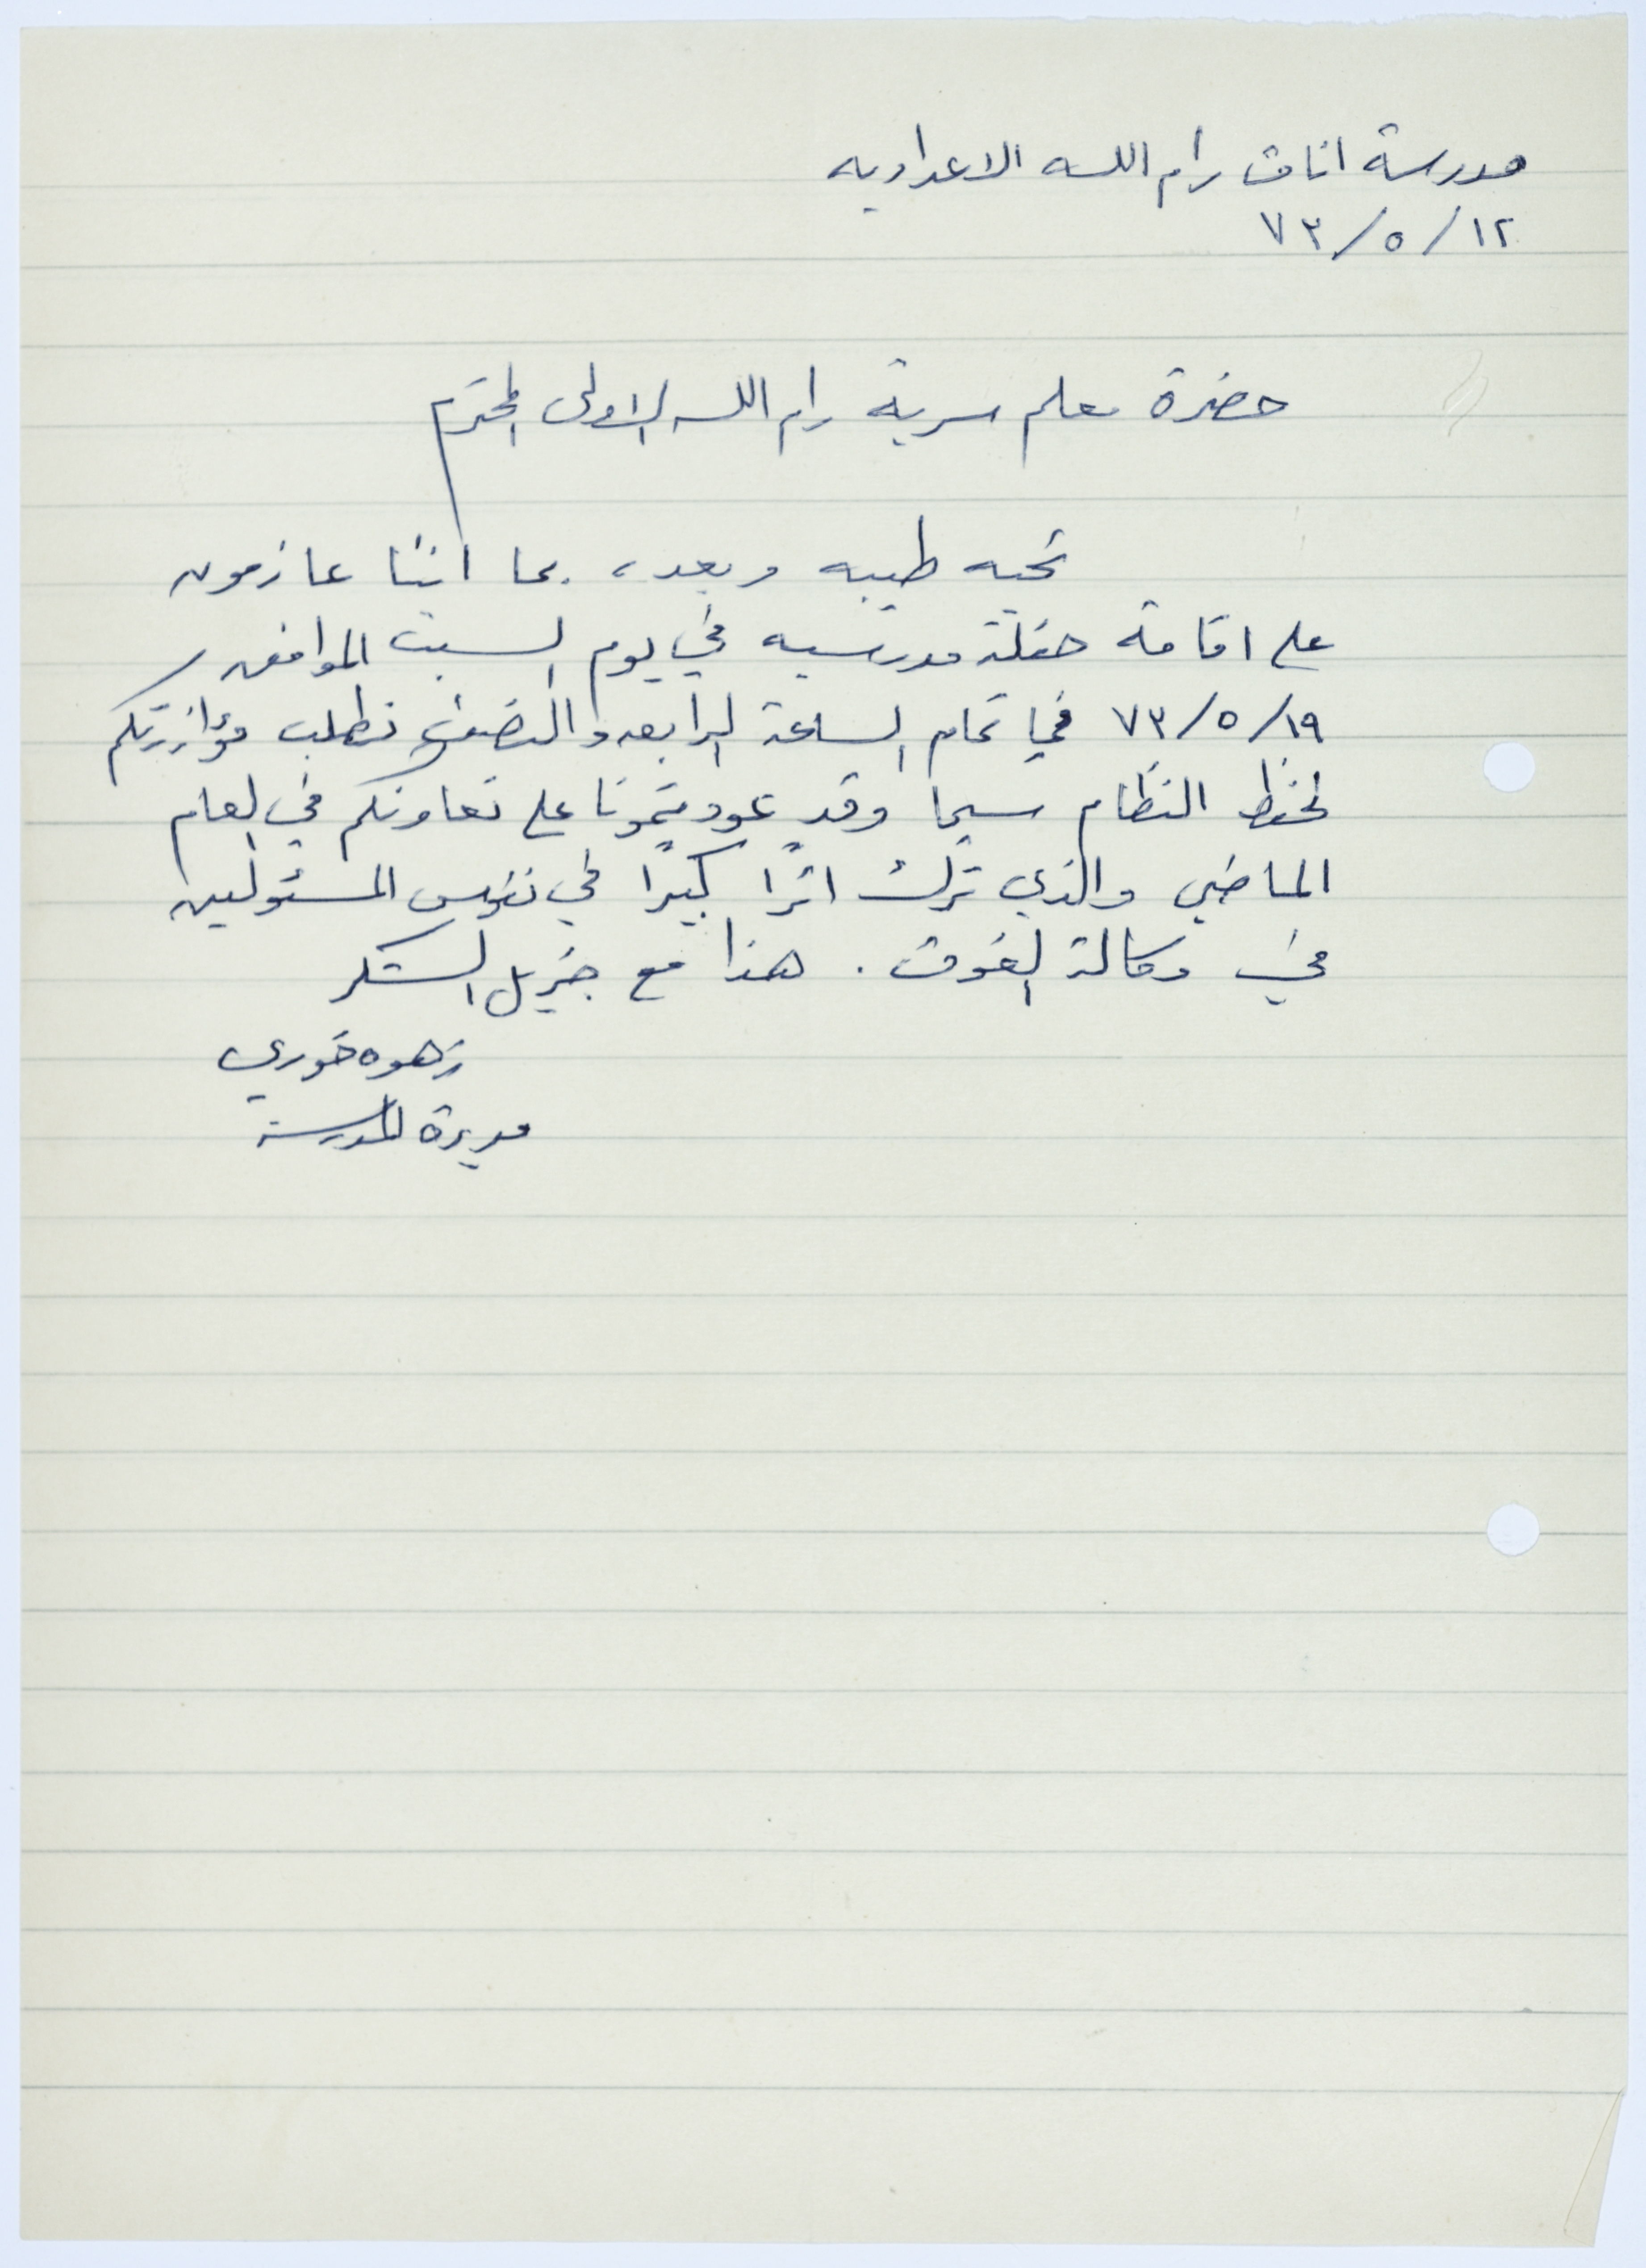 مدرسة اناث رام الله الاعداديه
١٢/٥/٧٣
حضرة معلم سرية رام الله الاولى المحترم
تحيه طيبه وبعد، بما اننا عازمون
على اقامة حفلة مدرسيه في يوم السبت الموافق
١٩/٥/٧٣ في تمام الساعة الرابعه والنصف نطلب مؤازرتكم
لحفظ النظام سيما وقد عودتمونا على تعاونكم في العام
الماضي والذي ترك اثرًا كبيرًا في نفوس المسئولين
في وكالة الغوث . هذا مع جزيل الشكر
زهوه خوري
مديرة المدرسة